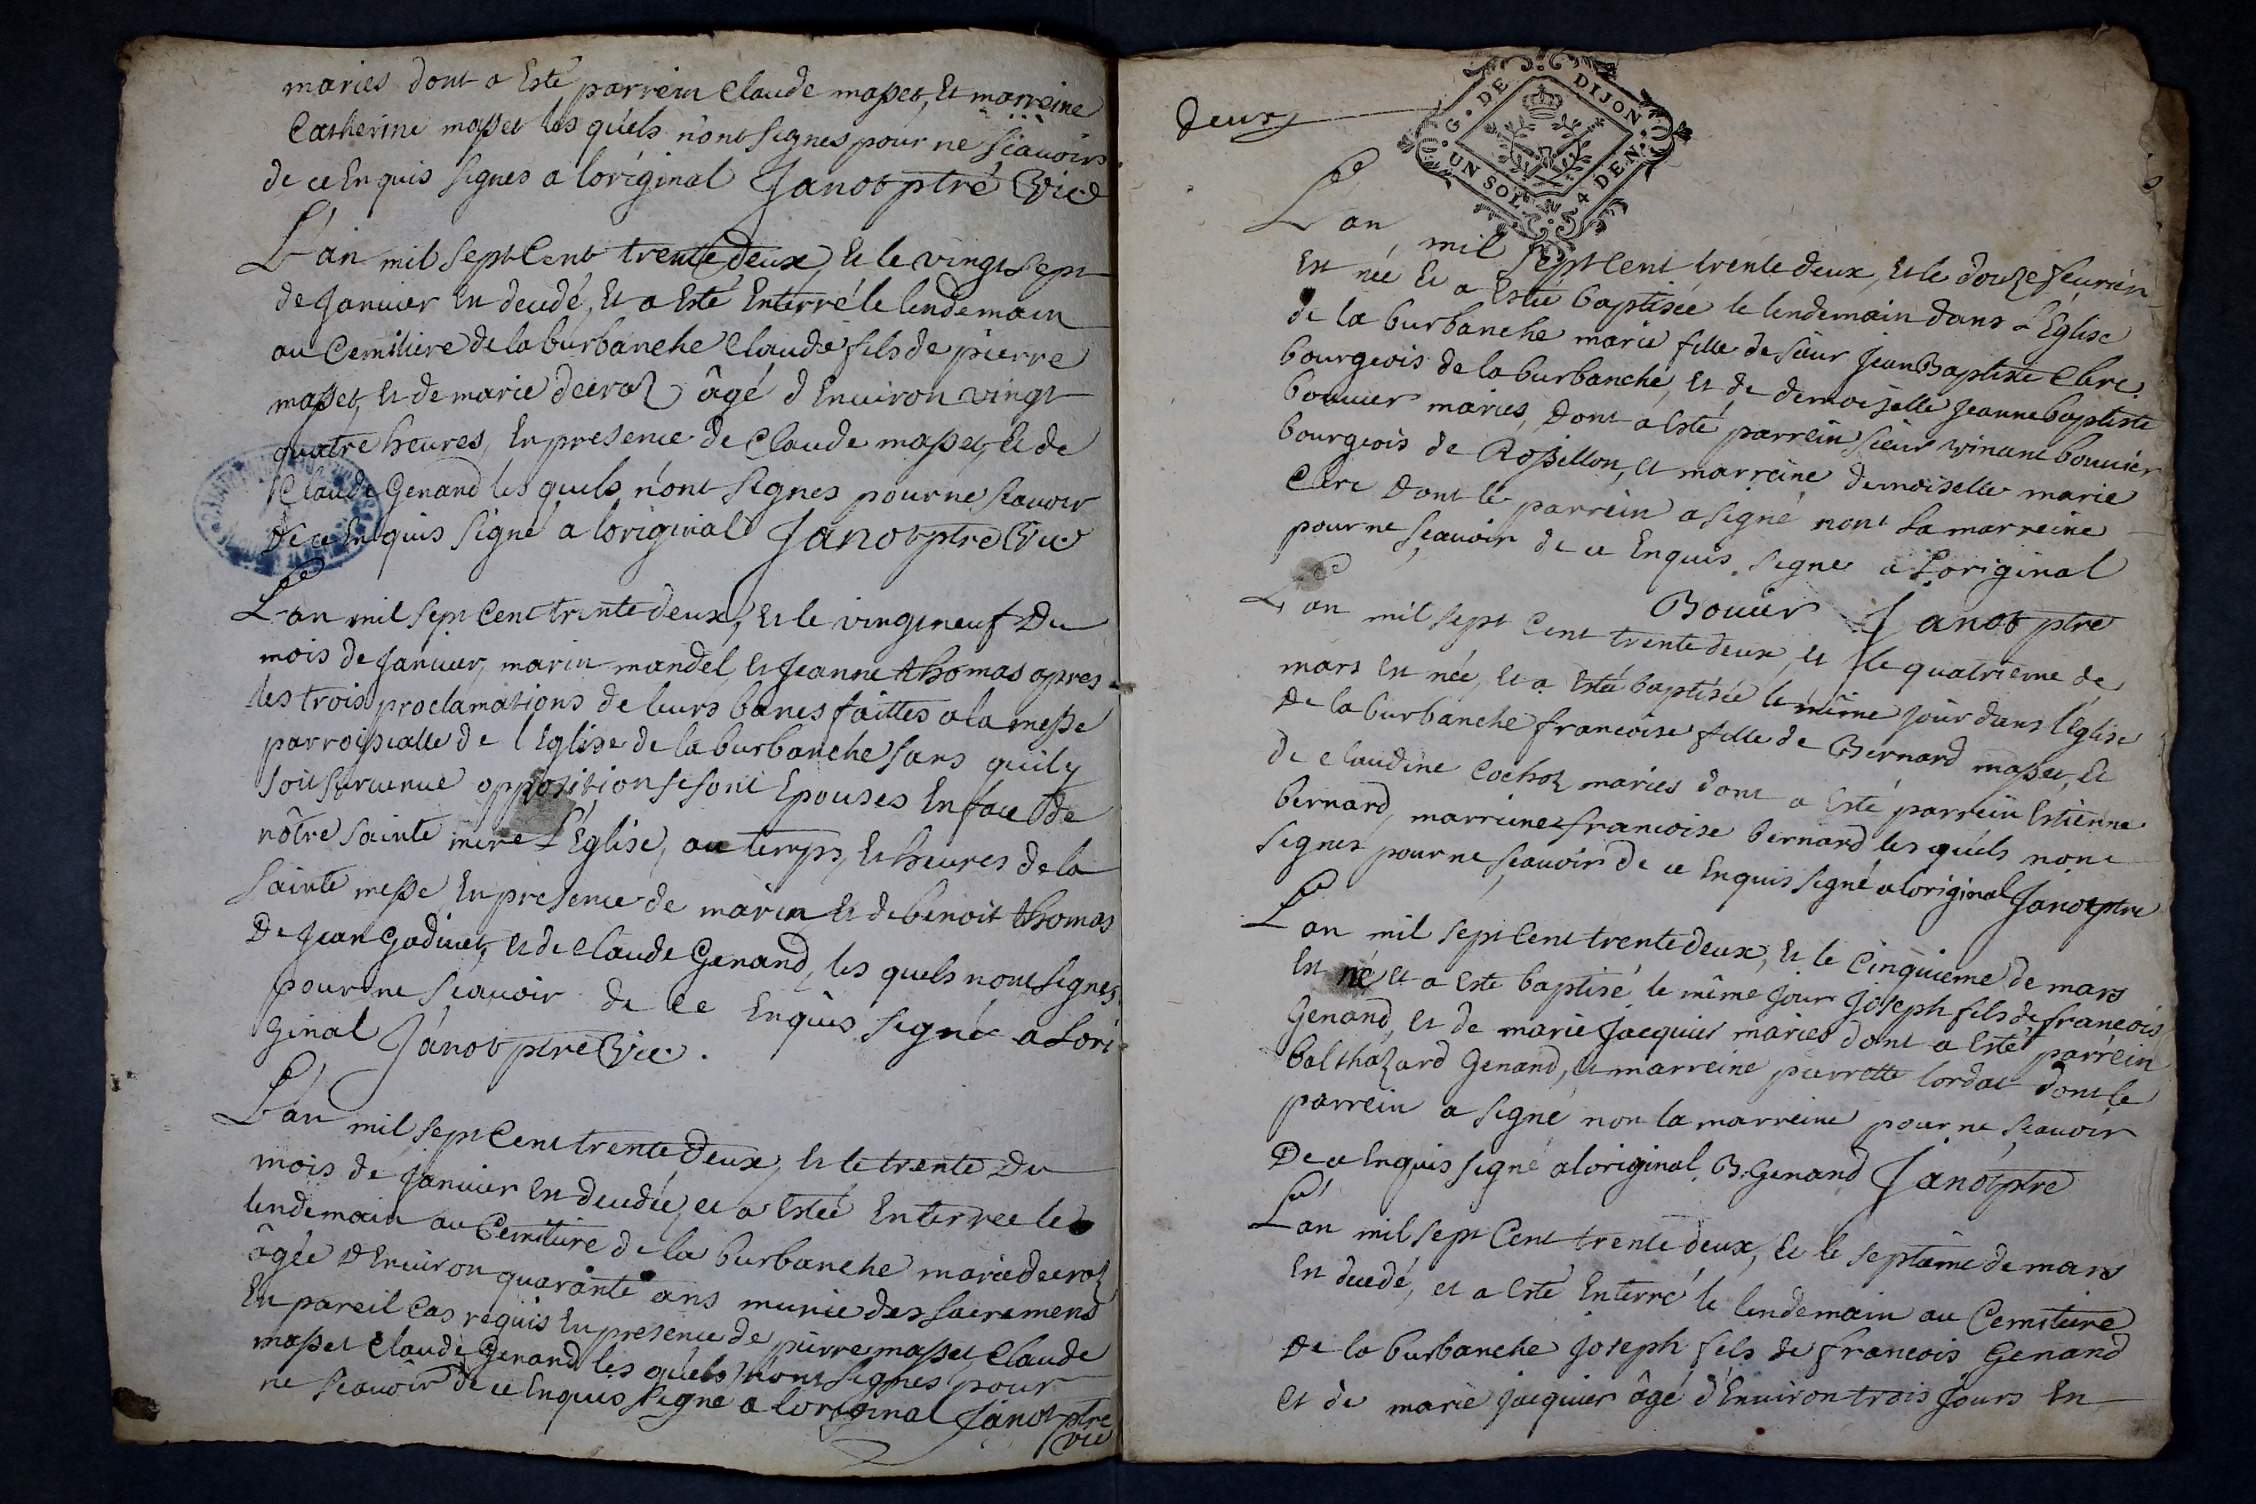 maries dont a Esté parrein Claude masset, Et marreine
Catherine masset les quiels n'ont signes pour ne sçavoirs
de ce Enquis signes a loriginal Janot ptré Vic
L'an mil sept Cent trente deux, Et le vingt sept
de Janvier En decedé, Et a Esté Enterré le lendemain
au Cemitiere de la burbanche Claude fils de pierre
masset, Et de marie decroz âgé d'Environ vingt
quatre heures, En presence de Claude masset, Et de
Claude Genand les quels n'ont signes pour ne scavoir
de ce Enquis signé a loriginal Janot ptre Vic
L'an mil sept Cent trente deux, Et le vingt neuf Du
mois de Janvier, marin mandel Et Jeanne thomas apres
les trois proclamations de leurs banes faittes a la messe
parroissialle de l'Eglise de la burbanche sans quily
soit survenue opposition se sont Epouses En face De
nôtre sainte mere L'Eglise, au temps, Et heures de la
sainte messe En presence de marin Et de benoit thomas
De Jean Godinet, Et de Claude Genand, les quels nont signes
pour ne scavoir de ce Enquis signé a Lori
ginal Janot ptre Vic.
L'an mil sept Cent trente deux, Et le trente Du
mois de Janvier En decedée, et a Estée Enterree le
lendemain au Cemitiere de la burbanche marie decroz
âgée D'Environ quarante ans munie des sacremens
En pareil Cas requis En presence de pierre masset Claude
masset Claude Genand les quiels n'ont signes pour
ne scavoir de ce Enquis signe a loriginal Janot ptre
vic
deux
G. DE DIJON
UN SOL 4 DEN.
L'an mil sept Cent trente deux, Et le douze feuvrier
En née Et a Estée baptisée le lendemain dans L'Eglise
de la burbanche marie fille de sieur Jean Baptiste Clerc
bourgeois de la burbanche, Et de demoiselle Jeanne baptiste
bouvier maries, Dont a Esté parrein sieur vinant bouvier
bourgeois de Rossillon, Et marreine demoiselle marie
Clerc Dont le parrein a signé nont La marreine
pour ne sçavoir de ce Enquis signes a L'original
Bouvier Janot ptre
L'an mil sept Cent trente deux, Et le quatrieme de
mars En née, Et a Estée baptisée le même jour dans l'Eglise
De la burbanche francoise fille de Bernard masset, Et
de Claudine Cochoz maries dont a Esté parrein Estienne
bernard, marreine francoise bernard les quiels nont
signes pour ne sçavoir de ce Enquis signé a loriginal Janot ptre
L'an mil sept Cent trente deux, Et le Cinquieme de mars
En né et a Esté baptisé le même Jour Joseph fils de francois
Genand, et de marie Jacquier maries dont a Esté parrein
balthazard Genand, Et marreine pierrette lordat dont le
parrein a signé non la marreine pour ne scavoir
De ce Enquis signé a loriginal, B. Genand Janot ptre
L'an mil sept Cent trente deux, Et le septieme de mars
En decedé, et a Esté Enterré le lendemain au Cemitiere
De la burbanche Joseph fils de francois Genand
et de marie jacquier âgé d'Environ trois jours En